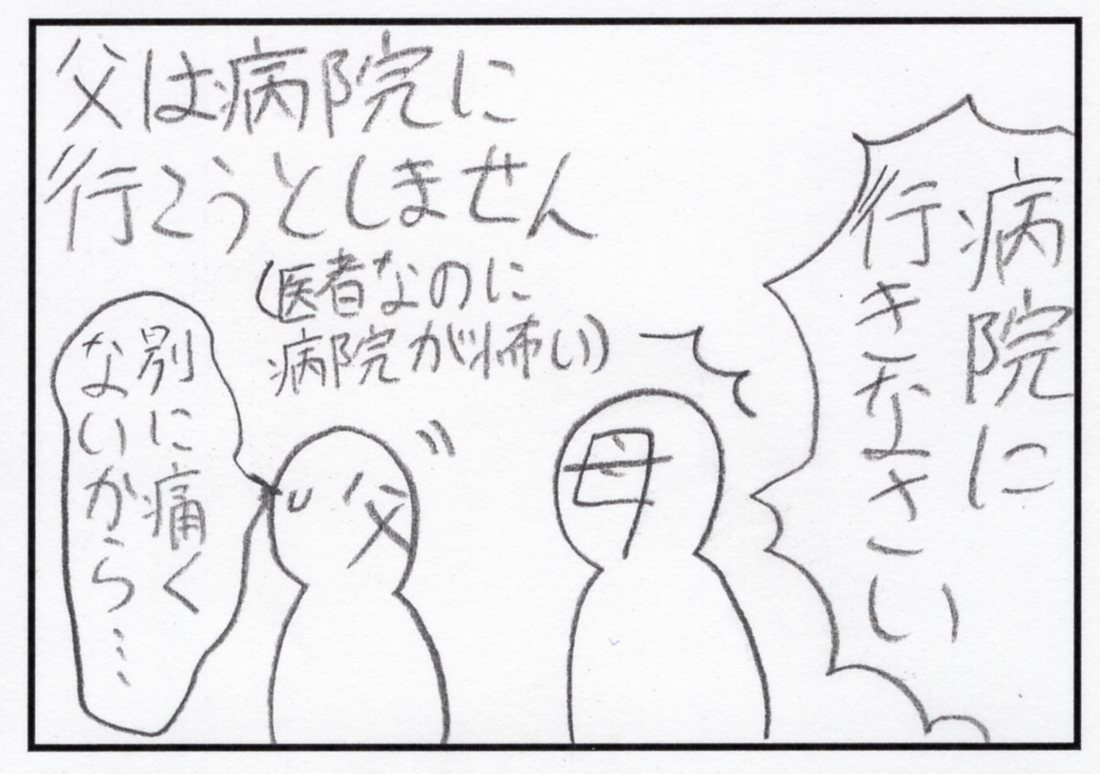 父は病院に
行こうとしません
(医者なのに
病院が怖い)
病院に
行きなさい
母
父
別に痛く
ないから…